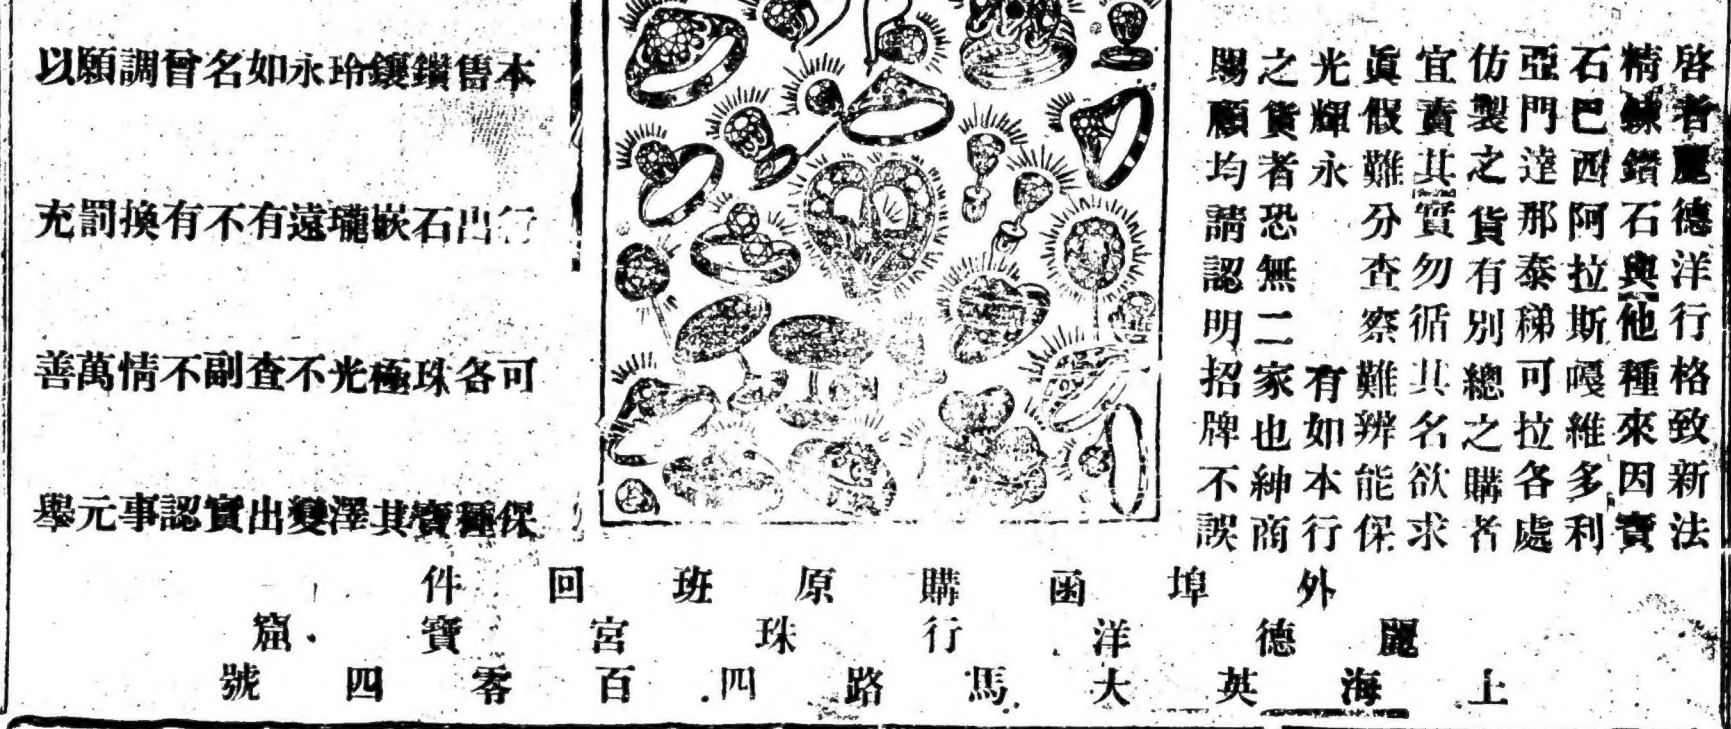 啓者麗德洋行格致新法
精鍊鑽石與他種來因寶
石巴西阿拉斯嘎維多利
亞門達那泰稊可拉各處
仿製之貨有別總之購者
宜賣其實勿循其名欲求
眞假難分查察難辨能保
光輝永 有如本行
之貨者恐無二家也紳商
賜顧均請認明招牌不誤
本行可保
售出各種
鑽石珠寶
鑲嵌極其
玲瓏光澤
永遠不變
如有查出
名不副實
曾有不認
調換情事
願罰萬元
以充善舉
外埠函購原班回件
麗德洋行珠宮寶窟
上海英大馬路四百零四號